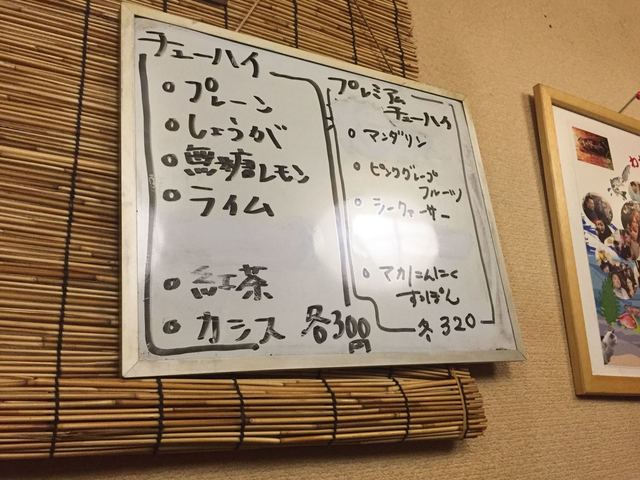 チューハイ
プレーン
しょうが
無糖レモン
ライム
紅茶
カシス 各300円
プレミアム
チューハイ
マンダリン
ピンクグレープ
フルーツ
シークァーサー
マカにんにく
すっぽん
各320